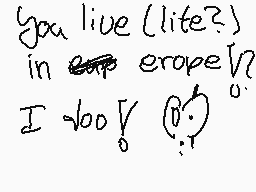 you live (lite?)
in erope!?
I doo!